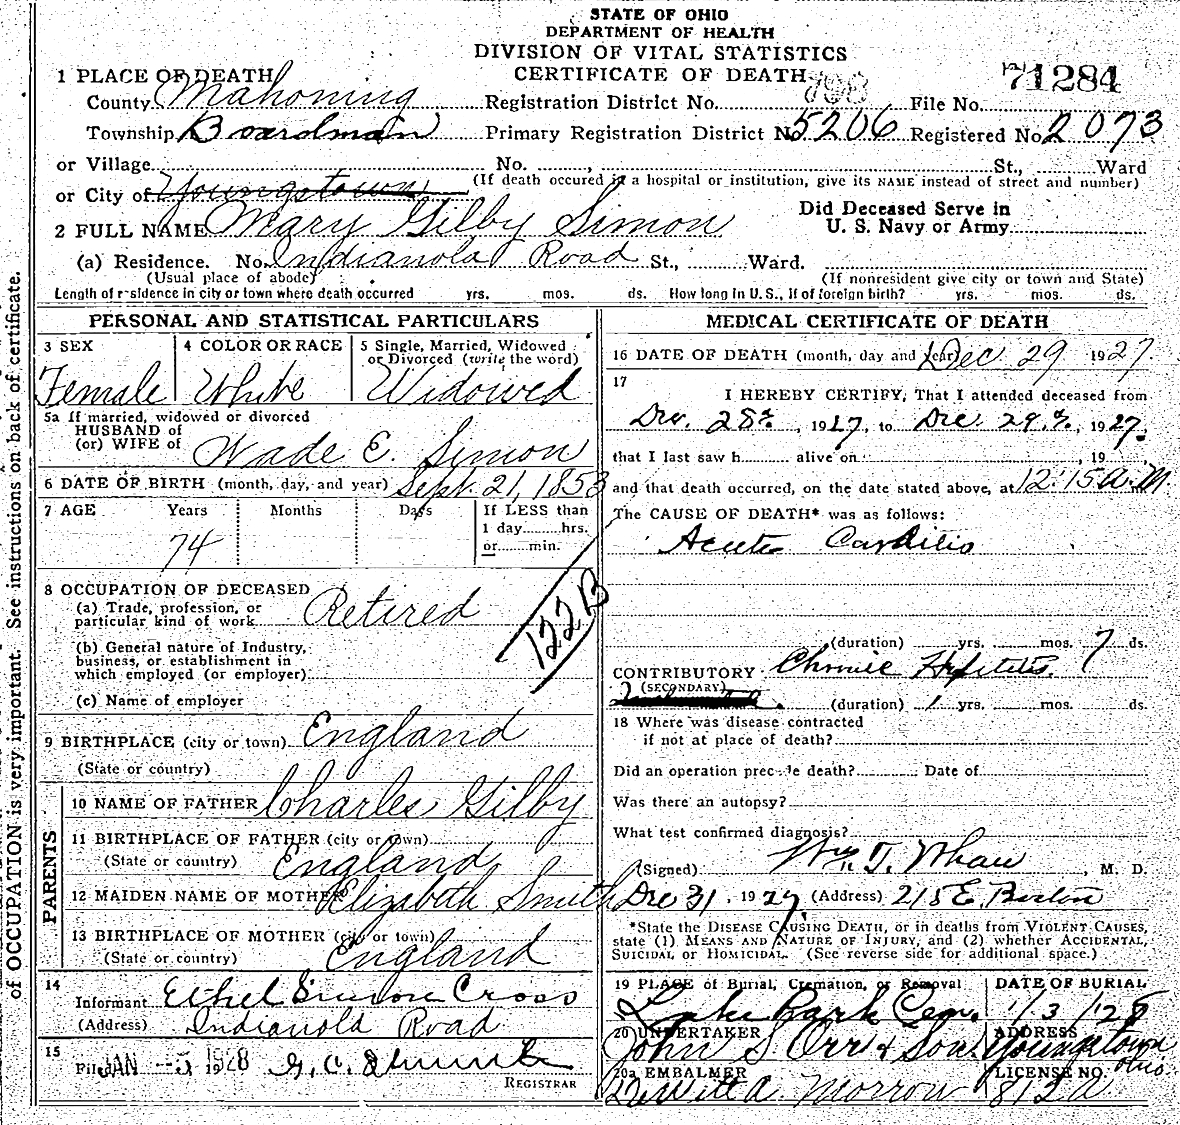 STATE OF OHIO
DEPARTMENT OF HEALTH
DIVISION OF VITAL STATISTICS
CERTIFICATE OF DEATH
1 PLACE OF DEATH
71284
County Mahoning Registration District No. File No.
Township Boardman Primary Registration District No 5206 Registered No. 2073
or Village No. , St., Ward
or City of Youngstown (If death occured in a hospital or institution, give its NAME instead of street and number)
2 FULL NAME Mary Gilby Simon Did Deceased Serve in U. S. Navy or Army
(a) Residence. No. Indianola Road St., Ward.
(Usual place of abode) (If nonresident give city or town and State)
Length of residence in city or town where death occurred yrs. mos. ds. How long in U.S., if of foreign birth? yrs. mos. ds.
PERSONAL AND STATISTICAL PARTICULARS
3 SEX 4 COLOR OR RACE 5 Single, Married, Widowed or Divorced (write the word)
Female White Widowed
5a If married, widowed or divorced
HUSBAND of
(or) WIFE of Wade E. Simon
6 DATE OF BIRTH (month, day, and year) Sept. 21, 1853
7 AGE Years Months Days If LESS than
1 day hrs.
74 or min.
8 OCCUPATION OF DECEASED
(a) Trade, profession, or
particular kind of work Retired
122B
(b) General nature of Industry,
business, or establishment in
which employed (or employer)
(c) Name of employer
9 BIRTHPLACE (city or town) England
(State or country)
PARENTS
10 NAME OF FATHER Charles Gilby
11 BIRTHPLACE OF FATHER (city or town)
(State or country) England
12 MAIDEN NAME OF MOTHER Elizabeth Smith
13 BIRTHPLACE OF MOTHER (city or town)
(State or country) England
14
Informant Ethel Simon Cross
(Address) Indianola Road
15
Filed JAN -3 1928 G. C.
REGISTRAR
MEDICAL CERTIFICATE OF DEATH
16 DATE OF DEATH (month, day and year) Dec 29 1927.
17
I HEREBY CERTIFY, That I attended deceased from
Dec. 28th, 1927, to Dec. 29th, 1927.
that I last saw h alive on , 19
and that death occurred, on the date stated above, at 12:15 A.M.
The CAUSE OF DEATH* was as follows:
Acute Carditis
(duration) yrs. mos. 7 ds.
CONTRIBUTORY Chronic Hepititis.
(SECONDARY)
(duration) 1 yrs. mos. ds.
18 Where was disease contracted
if not at place of death?
Did an operation precede death? Date of
Was there an autopsy?
What test confirmed diagnosis?
(Signed) Wm. T. Whan , M. D.
Dec 31, 1927. (Address) 215 E. Boston
*State the DISEASE CAUSING DEATH, or in deaths from VIOLENT CAUSES,
state (1) MEANS AND NATURE OF INJURY, and (2) whether ACCIDENTAL,
SUICIDAL or HOMICIDAL. (See reverse side for additional space.)
19 PLACE of Burial, Cremation, or Removal DATE OF BURIAL
Lake Park Cem. 1/3/28
20 UNDERTAKER ADDRESS
John S Orr & Son. Youngstown Ohio.
20a EMBALMER LICENSE NO.
DeWitt A. Morrow 812 a
of OCCUPATION is very important. See instructions on back of certificate.